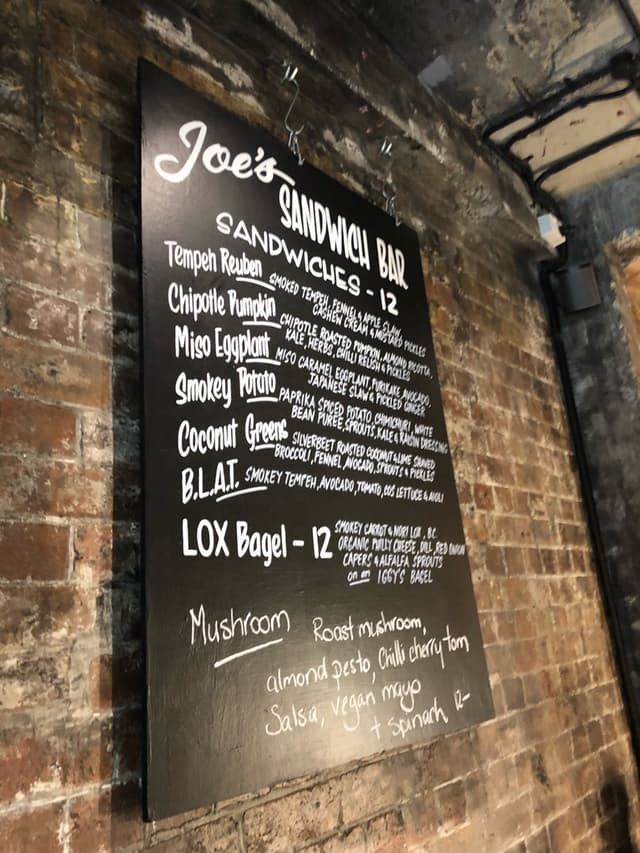 Joe's
SANDWICH BAR
SANDWICHES - 12
Tempeh Reuben SMOKED TEMPEH, FENNEL & APPLE SLAW,
CASHEW CREAM & MUSTARD PICKLES
Chipotle Pumpkin CHIPOTLE ROASTED PUMPKIN, ALMOND RICOTTA,
KALE, HERBS, CHILLI RELISH & PICKLES
Miso Eggplant MISO CARAMEL EGGPLANT, FURIKAKE AVOCADO,
JAPANESE SLAW & PICKLED GINGER
Smokey Potato PAPRIKA SPICED POTATO, CHIMICHURRI, WHITE
BEAN PUREE, SPROUTS, KALE & RAISIN DRESSING
Coconut Greens SILVERBEET ROASTED COCONUT & LIME SHAVED
BROCCOLI, FENNEL, AVOCADO, SPROUTS & PICKLES
B.L.A.T. SMOKEY TEMPEH, AVOCADO, TOMATO, COS LETTUCE & AIOLI
LOX Bagel - 12 SMOKEY CARROT & NORI LOX, B.C.
ORGANIC PHILLY CHEESE, DILL, RED ONION
CAPERS & ALFALFA SPROUTS
on an IGGY'S BAGEL
Mushroom Roast mushroom,
almond pesto, Chilli cherry tom
Salsa, vegan mayo
+ spinach 12-